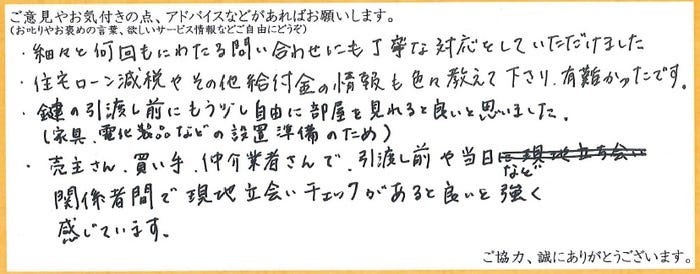 ご意見やお気付きの点、アドバイスなどがあればお願いします。
(お叱りやお褒めの言葉、欲しいサービス情報などご自由にどうぞ)
・細々と何回もにわたる問い合わせにも丁寧な対応をしていただけました
・住宅ローン減税やその他給付金の情報も色々教えて下さり、有難かったです。
・鍵の引渡し前にもう少し自由に部屋を見れると良いと思いました。
(家具、電化製品などの設置準備のため)
・売主さん、買い手、仲介業者さんで、引渡し前や当日に現地立ち会い
など
関係者間で現地立会いチェックがあると良いと強く
感じています。
ご協力、誠にありがとうございます。